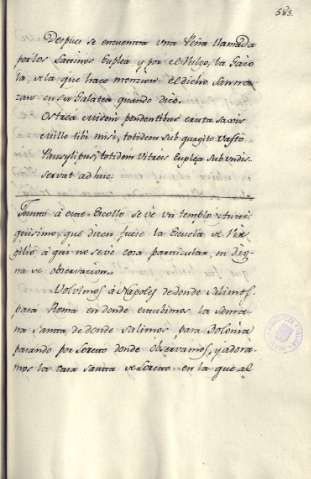 583.
Despues se encuentra una Peña llamada
por los Latinos Euplea y por el Vulgo, la Gaio
la, de la que hace mencion el dicho Sanna
zaro en su Galatea quando dice.
Ostrea pendentibus eruta saxis
mille tibi misi, totidem sub gurgite vasto
Pausylipus, totidem vitreis Euplea sub undis
servat adhuc.
Junto à este Escollo se vè un templo
que dicen fuese la Escuela de Vir
gilio, à qui no se ve cosa particular, ni dig
na de observacion.
Volvimos à Napoles de donde salimos
para Roma en donde tuvimos la Sema
na Santa de donde salimos, para Bolonia
pasando por Loreto donde observamos, y adora
mos la Casa Santa de Loreto en la que al